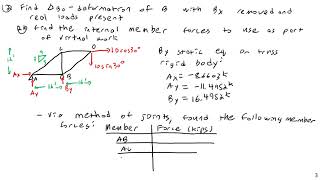 ② Find ΔBxo - deformation of B with Bx removed and
real loads present
find the internal member forces to use as part
of virtual work
10cos30°
10sin30°
12'
C
D
A
B
Ax
Ay
By
16'
16'
By static eq on truss
rigid body:
Ax = -8.6603k
Ay = -11.4952k
By = 16.4952k
- via method of joints, found the following member
forces:
Member
Force (kips)
AB
AC
3